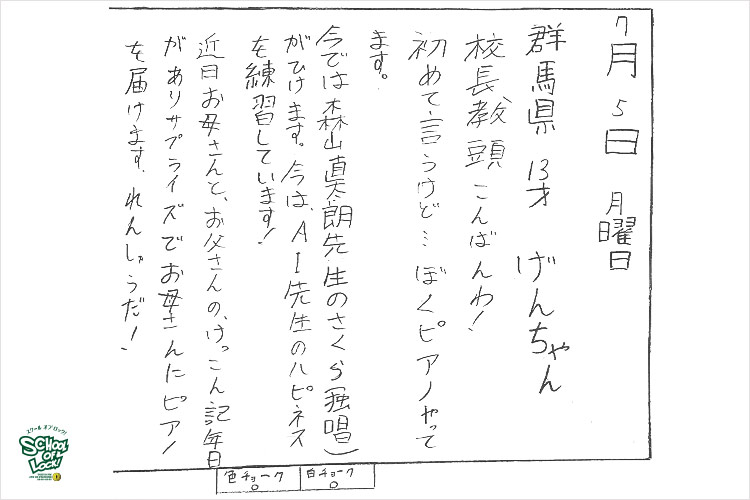 7月5日 月曜日
群馬県 13才 げんちゃん
校長教頭こんばんわ!
初めて言うけど…ぼくピアノやって
ます。
今では森山直太朗先生のさくら(独唱)
がひけます。今は、AI先生のハピネス
を練習しています!
近日お母さんと、お父さんの、けっこん記年日
がありサプライズでお母さんにピアノ
を届けます。れんしゅうだ!
色チョーク 白チョーク
○ ○
スクール オブ ロック!
SCHOOL OF LOCK!